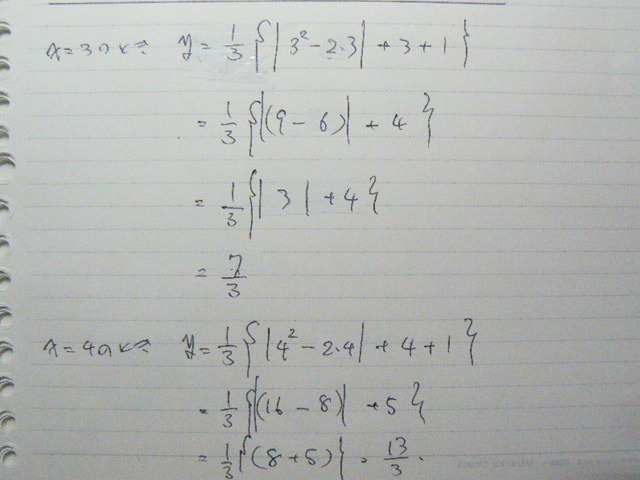 x=3のとき y = 1/3 { | 3² - 2·3 | + 3 + 1 }
= 1/3 { |(9 - 6)| + 4 }
= 1/3 { | 3 | + 4 }
= 7/3
x=4のとき y = 1/3 { | 4² - 2·4 | + 4 + 1 }
= 1/3 { |(16 - 8)| + 5 }
= 1/3 { (8 + 5) } = 13/3.